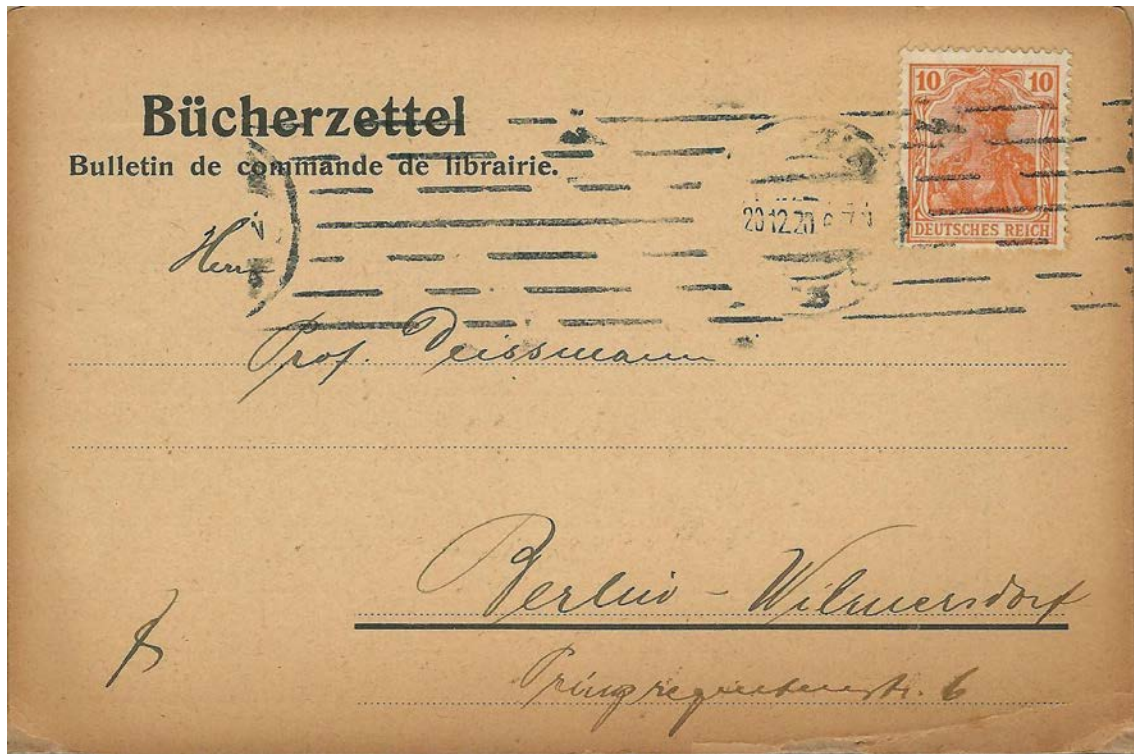 Bücherzettel
Bulletin de commande de librairie.
10 10
DEUTSCHES REICH
20.12.20
Herrn
Prof. Deissmann
Berlin - Wilmersdorf
Prinzregentenstr. 6